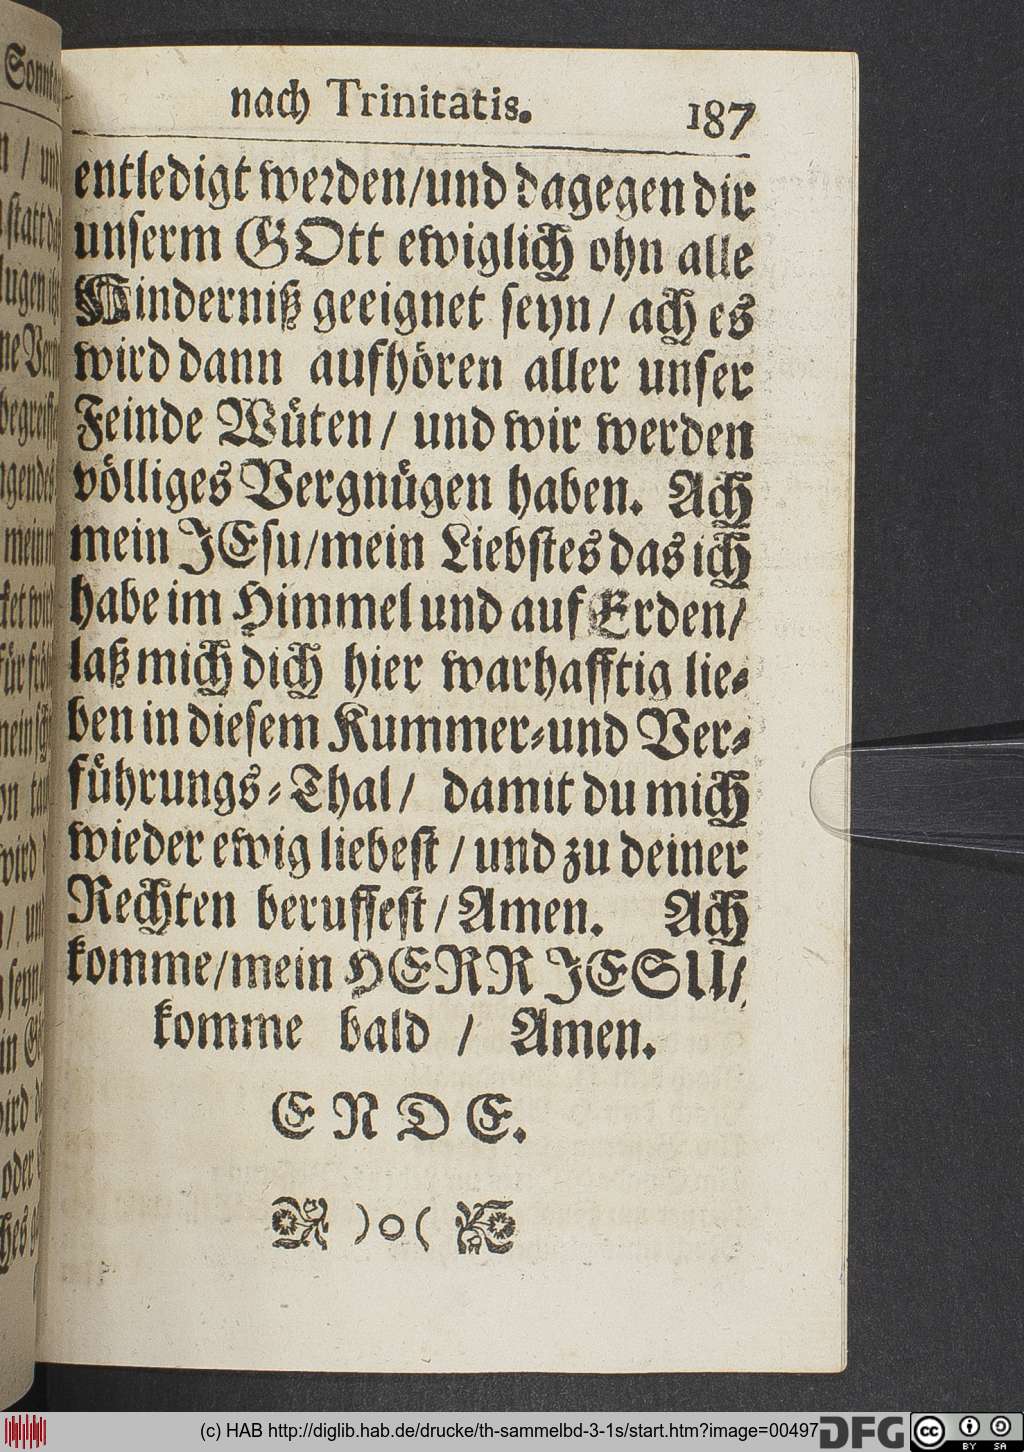 nach Trinitatis. 187
entledigt werden/und dagegen dir
unserm GOtt ewiglich ohn alle
Hinderniß geeignet seyn/ ach es
wird dann aufhören aller unser
Feinde Wüten/ und wir werden
völliges Vergnügen haben. Ach
mein JEsu/mein Liebstes das ich
habe im Himmel und auf Erden/
laß mich dich hier warhafftig lie-
ben in diesem Kummer-und Ver-
führungs-Thal/ damit du mich
wieder ewig liebest/und zu deiner
Rechten beruffest/Amen. Ach
komme/mein HERR JESU/
komme bald / Amen.
ENDE.
)o(
(c) HAB http://diglib.hab.de/drucke/th-sammelbd-3-1s/start.htm?image=00497
DFG
cc BY SA